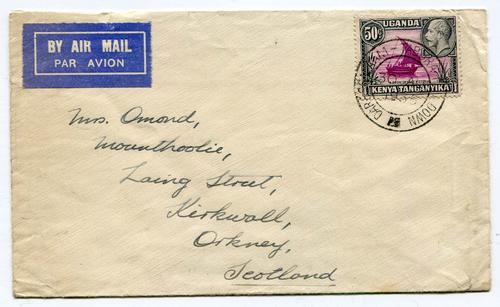 BY AIR MAIL
PAR AVION
50c
UGANDA
KENYA TANGANYIKA
DOWN
Mrs. Omond,
Mounthoolie,
Laing Street,
Kirkwall,
Orkney,
Scotland